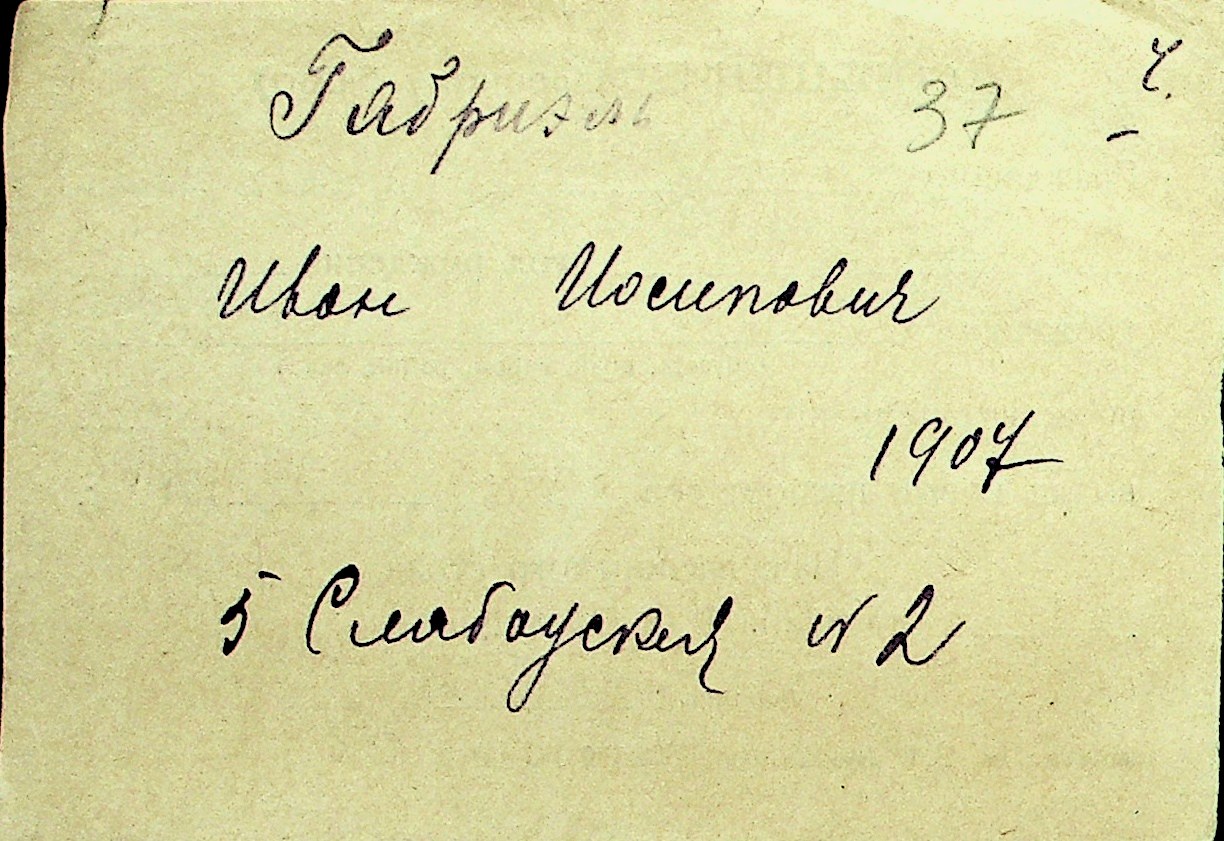 Габриэль 37 ч.
Иван Иосипович
1907
5 Слабоуская № 2